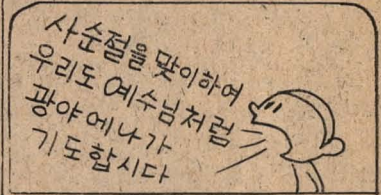 사순절을 맞이하여
우리도 예수님처럼
광야에나가
기도합시다